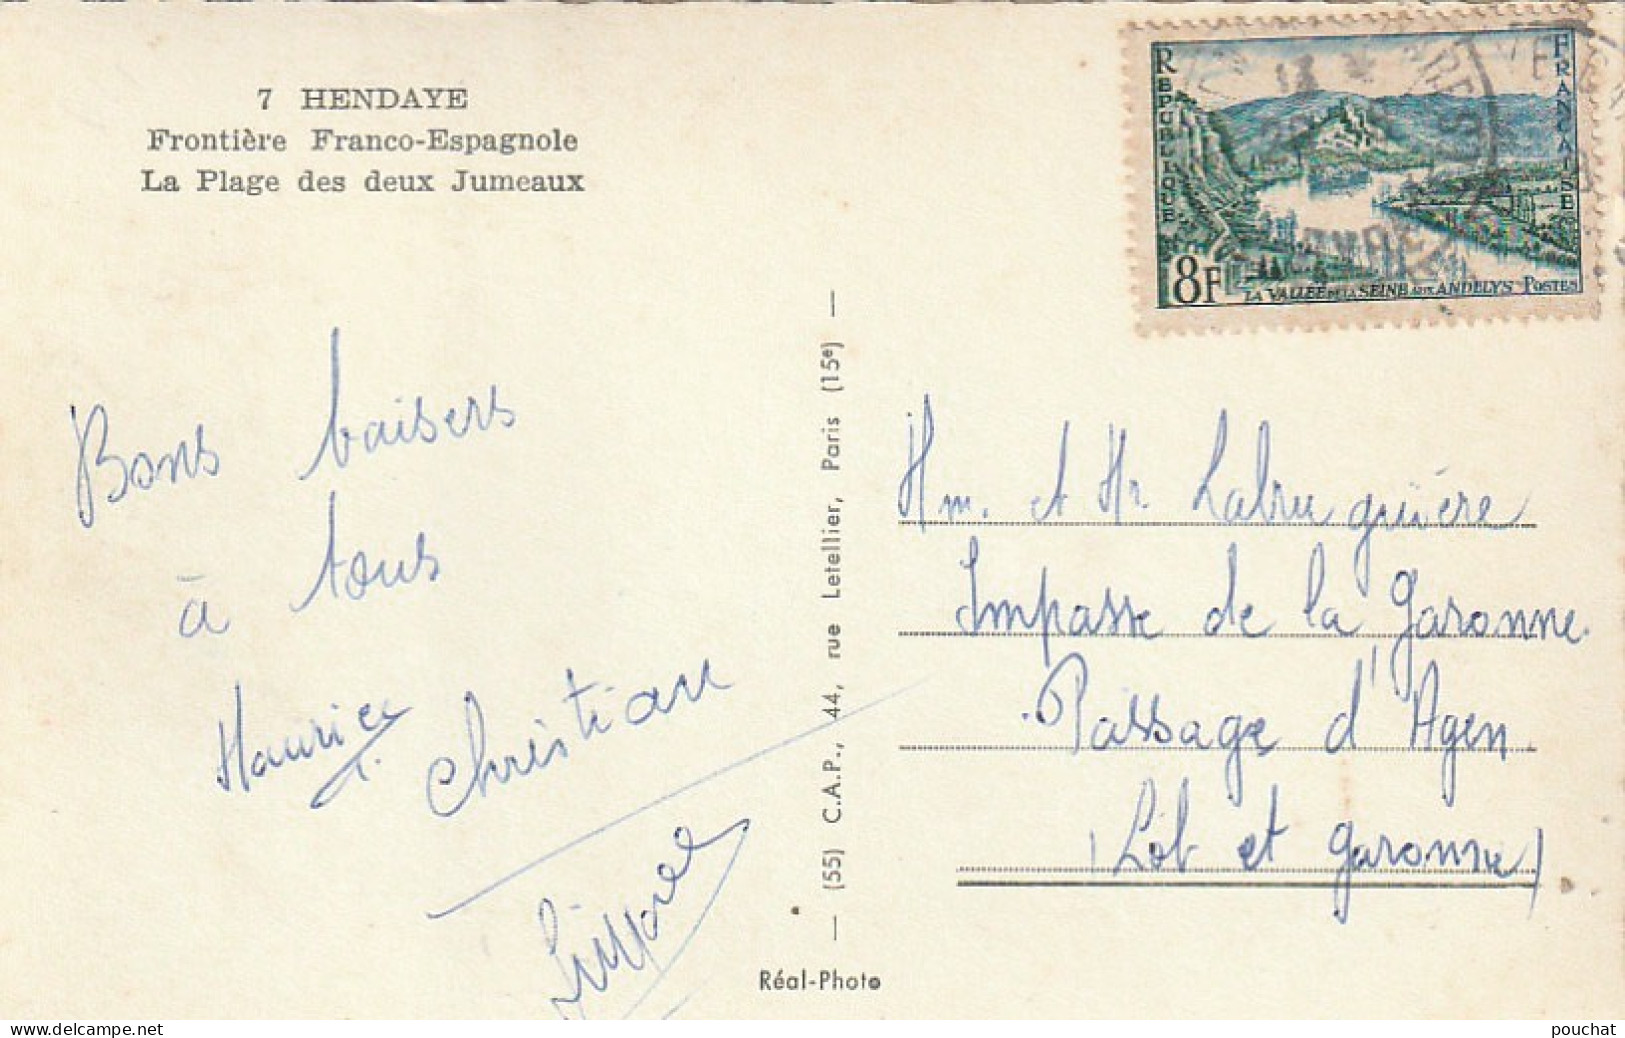 7 HENDAYE
Frontière Franco-Espagnole
La Plage des deux Jumeaux
RÉPUBLIQUE
FRANÇAISE
8F
LA VALLÉE DE LA SEINE AUX ANDELYS POSTES
Bons baisers
à tous
Maurice
Christian
(55) C.A.P., 44, rue Letellier, Paris (15e)
Réal-Photo
Mm. et Mr. Labruguière
Impasse de la Garonne
Passage d'Agen
(Lot et Garonne)
www.delcampe.net
pouchat